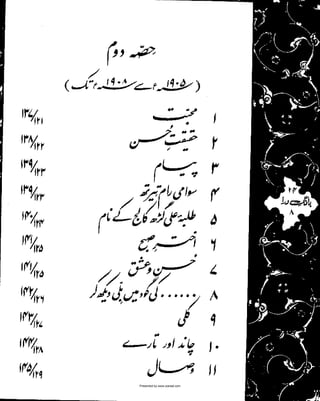 حصّہ دوم
(۱۹۰۵ء سے ۱۹۰۸ء تک)
۱ محبت ۱۳۷/۱۲۱
۲ حقیقتِ حسن ۱۳۸/۱۲۲
۳ پیام ۱۳۹/۱۲۳
۴ سوامی رام تیرتھ ۱۳۹/۱۲۳
۵ طلبۂ علی گڑھ کالج کے نام ۱۴۰/۱۲۴
۶ اخترِ صبح ۱۴۱/۱۲۵
۷ حسن و عشق ۱۴۱/۱۲۵
۸ ...... کی گود میں بلّی دیکھ کر ۱۴۲/۱۲۶
۹ کلی ۱۴۳/۱۲۷
۱۰ چاند اور تارے ۱۴۴/۱۲۸
۱۱ وصال ۱۴۵/۱۲۹
بانگِ درا
۸
Presented by www.iqbalet.com